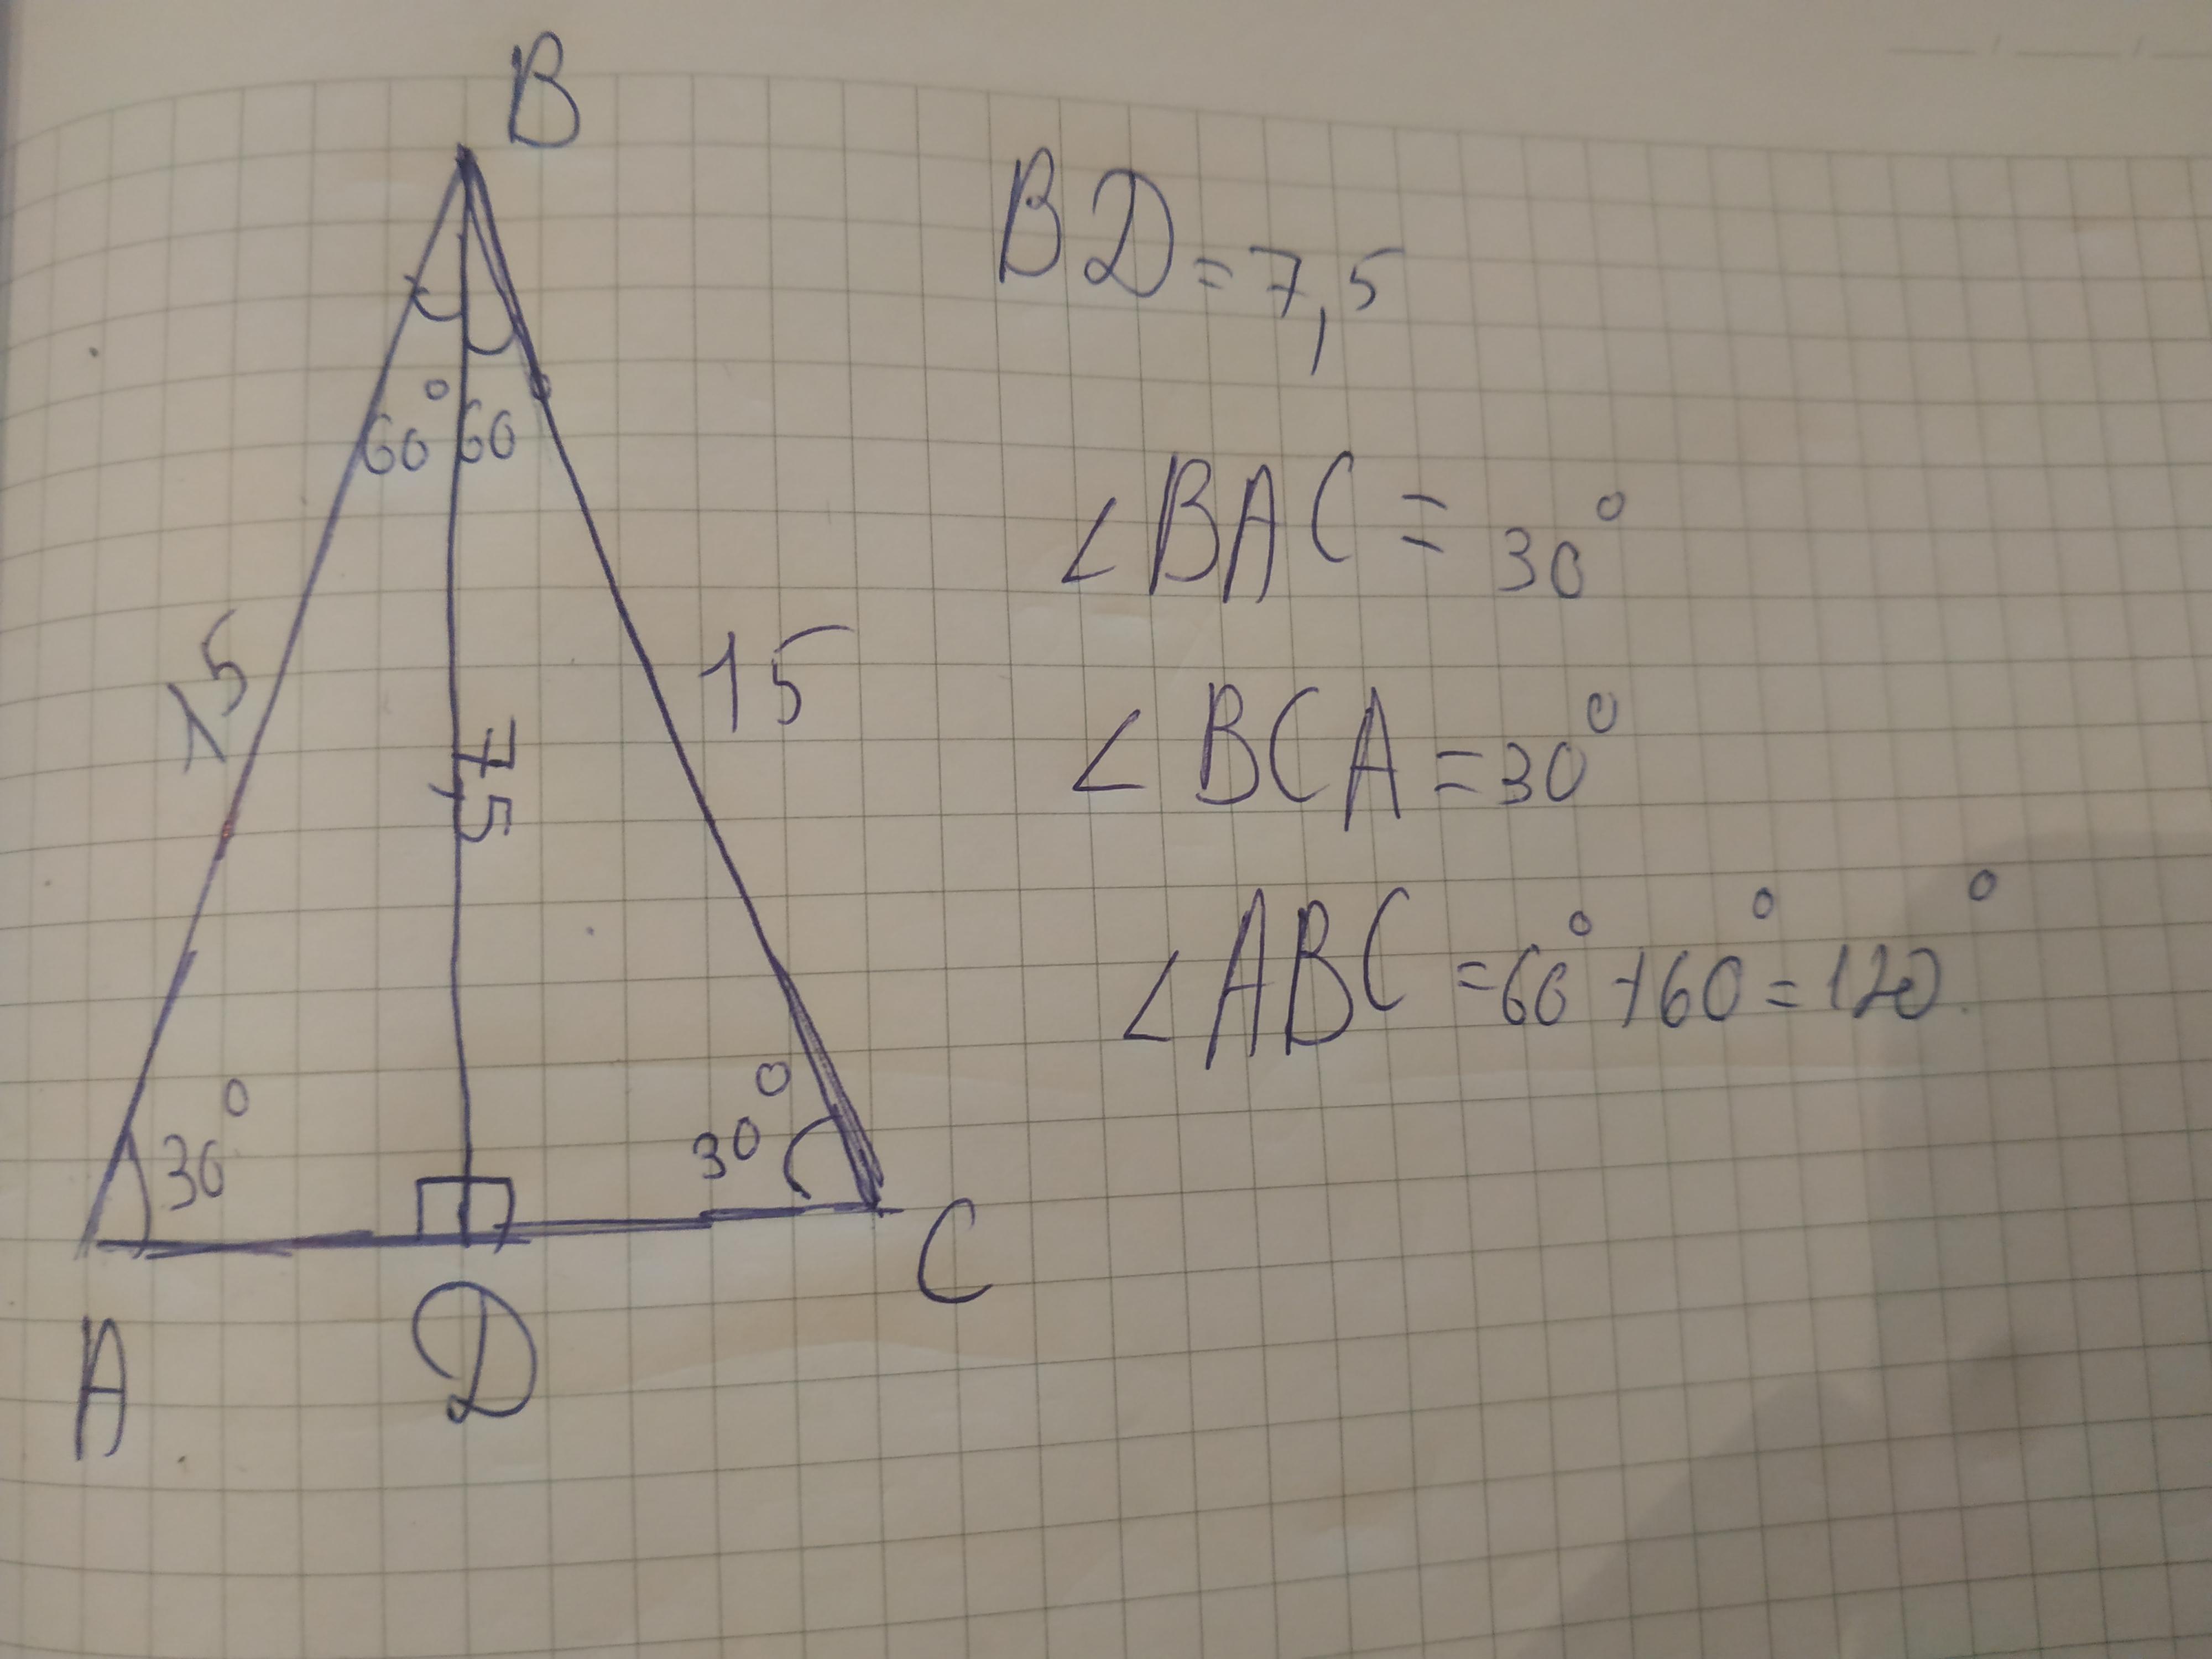 B
BD=7,5
60° 60°
∠BAC=30°
15
15
∠BCA=30°
7,5
∠ABC=60°+60°=120°
30°
30°
C
A
D